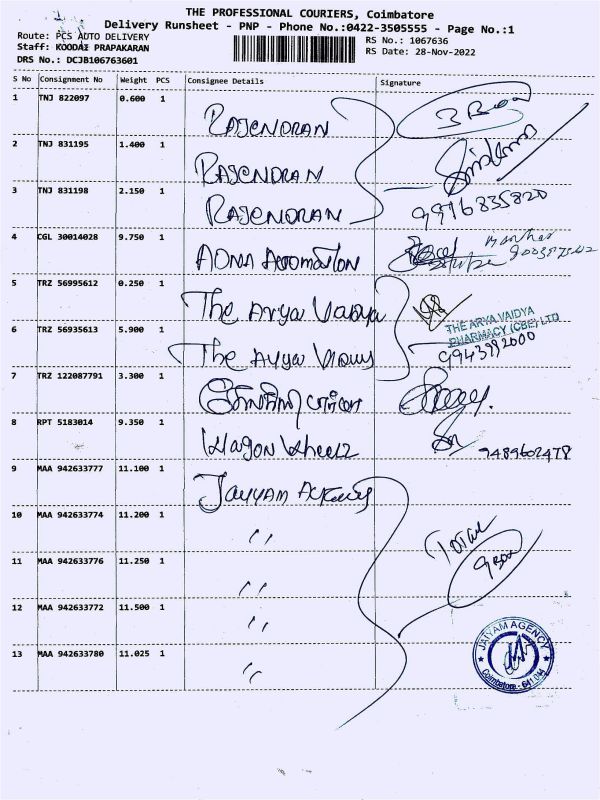 THE PROFESSIONAL COURIERS, Coimbatore
Delivery Runsheet - PNP - Phone No.:0422-3505555 - Page No.:1
Route: PCS AUTO DELIVERY
RS No.: 1067636
Staff: KOODAI PRAPAKARAN
RS Date: 28-Nov-2022
DRS No.: DCJB106763601
S No Consignment No Weight PCS Consignee Details Signature
1 TNJ 822097 0.600 1 RAJENDRAN 3 Box
2 TNJ 831195 1.400 1 RAJENDRAN
3 TNJ 831198 2.150 1 RAJENDRAN 9916835820
4 CGL 30014028 9.750 1 ADNA Automation
5 TRZ 56995612 0.250 1 The Arya Vaidya
THE ARYA VAIDYA
PHARMACY (CBE) LTD
6 TRZ 56935613 5.900 1 The Arya 9943992000
7 TRZ 122087791 3.300 1
8 RPT 5183014 9.350 1 Wagon Wheelz 9489602478
9 MAA 942633777 11.100 1 JAYYAM
10 MAA 942633774 11.200 1 "
TOTAL
9 Box
11 MAA 942633776 11.250 1 "
12 MAA 942633772 11.500 1 "
13 MAA 942633780 11.025 1 "
JAIYAM AGENCY
Coimbatore - 641 044